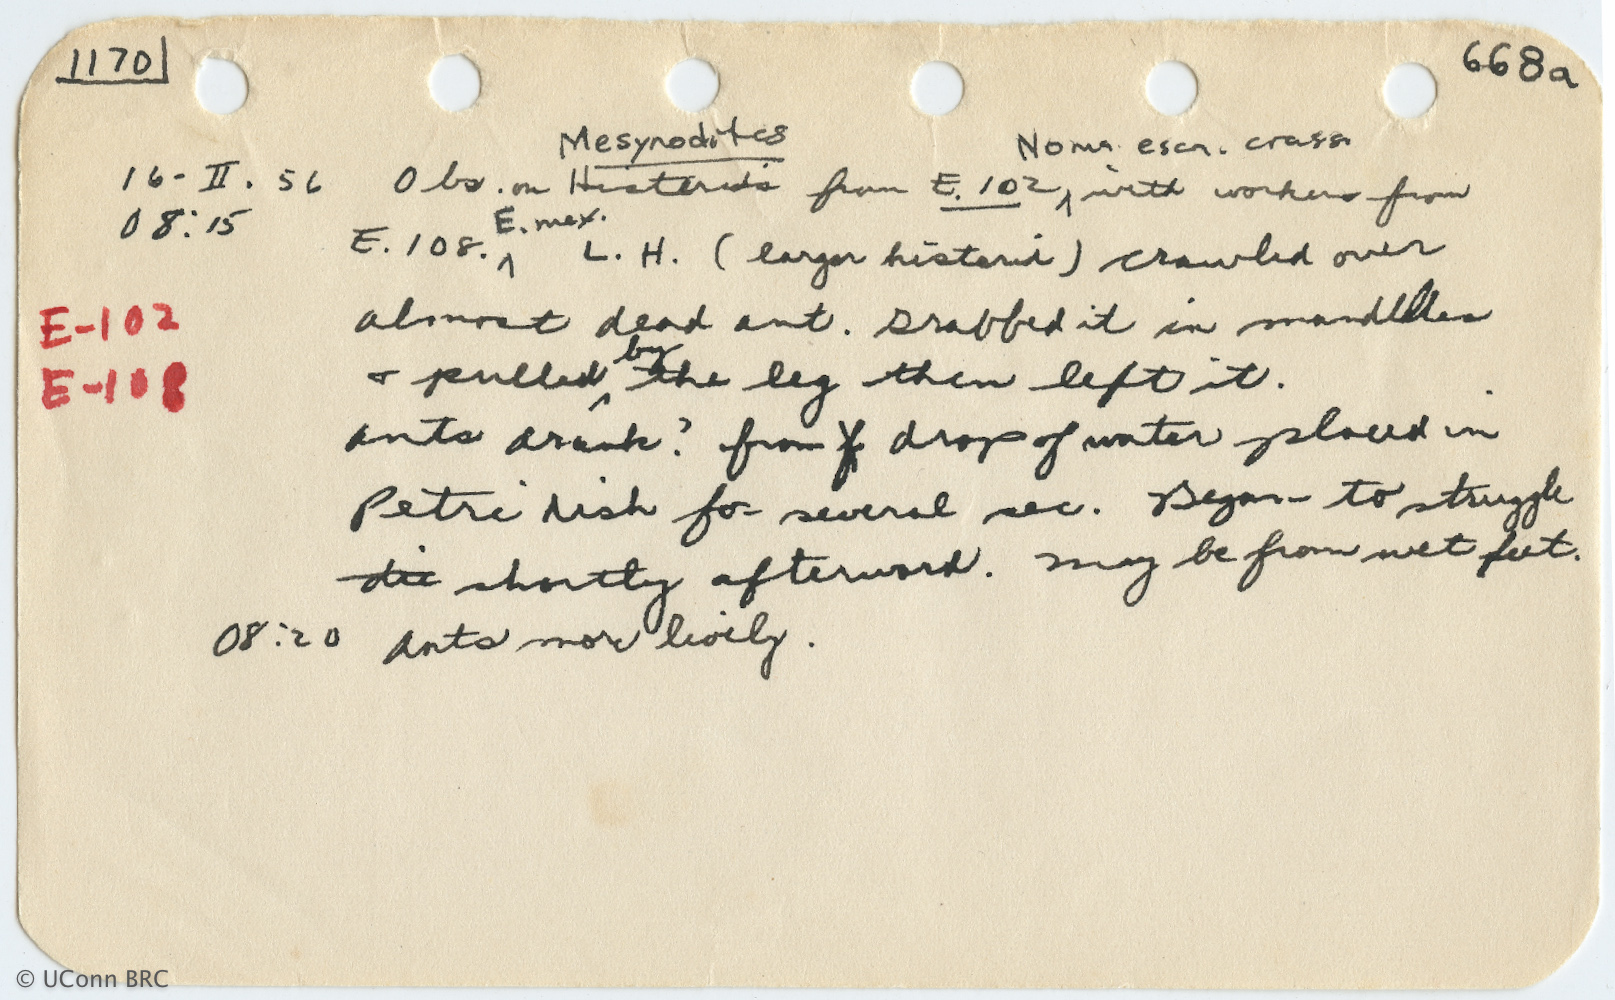 1170
668a
Mesynodites
Noma. escr. crass.
16-II. 56
Obs. on Histerids from E. 102 ^ with workers from
08:15
E. mex.
E. 108. ^ L. H. (larger histerid) crawled over
E-102
almost dead ant. Grabbed it in mandibles
by
E-108
+ pulled ^ the leg then left it.
ants drank? from drop of water placed in
Petri dish for several sec. Began to struggle
die shortly afterward. may be from wet feet.
08:20 Ants more lively.
© UConn BRC